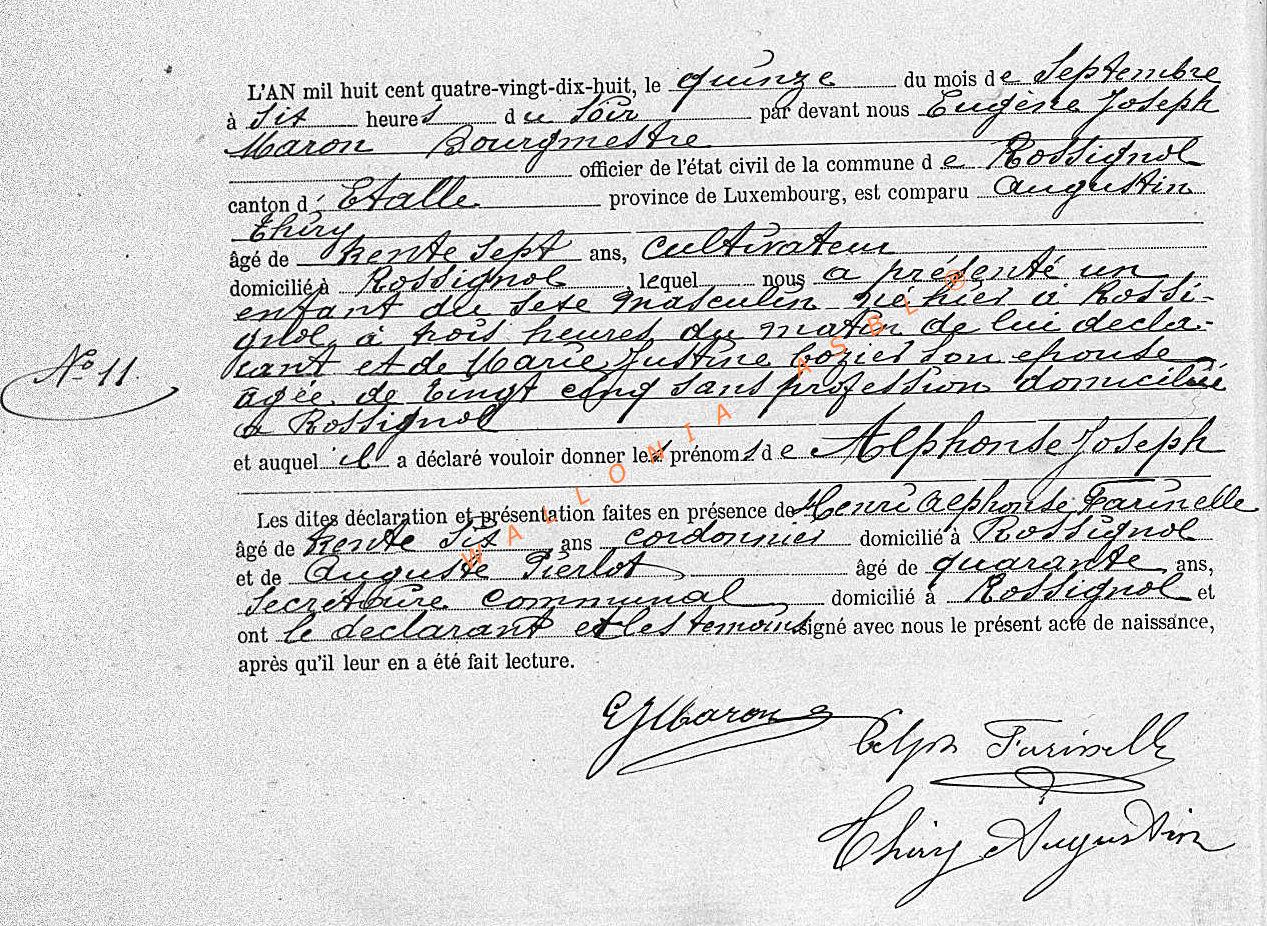 L'AN mil huit cent quatre-vingt-dix-huit, le quinze du mois de Septembre
à six heures du soir par devant nous Eugène Joseph
Maron Bourgmestre
officier de l'état civil de la commune de Rossignol
canton d' Etalle province de Luxembourg, est comparu Augustin
Thiry
âgé de trente sept ans, cultivateur
domicilié à Rossignol lequel nous a présenté un
enfant du sexe masculin né hier à Rossi-
gnol à trois heures du matin de lui décla-
rant et de Marie Justine Cozier son épouse
agée de vingt cinq sans profession domiciliée
à Rossignol
N° 11.
et auquel il a déclaré vouloir donner les prénoms de Alphonse Joseph
Les dites déclaration et présentation faites en présence de Henri Alphonse Farinelle
âgé de trente six ans cordonnier domicilié à Rossignol
et de Auguste Pierlot âgé de quarante ans,
secrétaire communal domicilié à Rossignol et
ont le déclarant et les temoins signé avec nous le présent acte de naissance,
après qu'il leur en a été fait lecture.
EJMaron
Farinelle
Thiry Augustin
WALLONIA ASBL ®